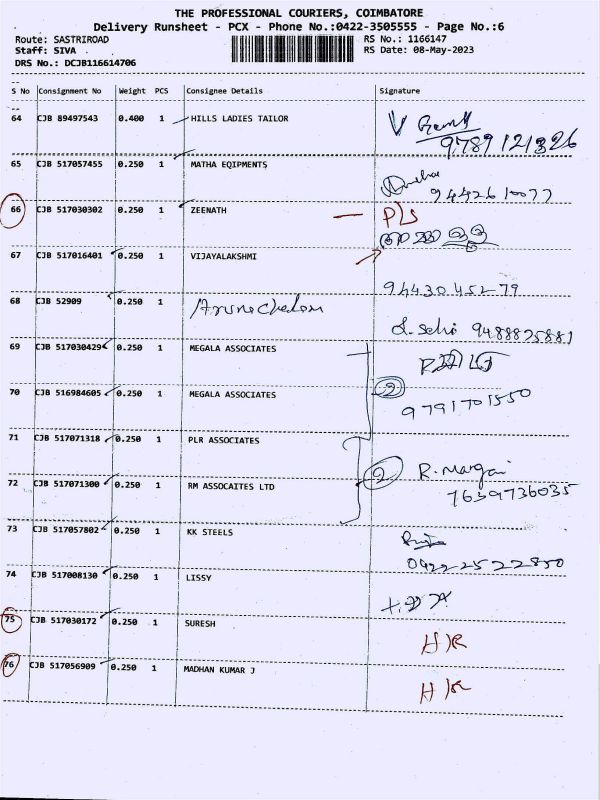 THE PROFESSIONAL COURIERS, COIMBATORE
Delivery Runsheet - PCX - Phone No.:0422-3505555 - Page No.:6
Route: SASTRIROAD RS No.: 1166147
Staff: SIVA RS Date: 08-May-2023
DRS No.: DCJB116614706
S No Consignment No Weight PCS Consignee Details Signature
64 CJB 89497543 0.400 1 HILLS LADIES TAILOR
9789121326
65 CJB 517057455 0.250 1 MATHA EQIPMENTS
9442610077
66 CJB 517030302 0.250 1 ZEENATH P/S
67 CJB 517016401 0.250 1 VIJAYALAKSHMI
94430 45279
68 CJB 52909 0.250 1 Arunachalam
9488825881
69 CJB 517030429 0.250 1 MEGALA ASSOCIATES
70 CJB 516984605 0.250 1 MEGALA ASSOCIATES 2
9791701550
71 CJB 517071318 0.250 1 PLR ASSOCIATES
72 CJB 517071300 0.250 1 RM ASSOCAITES LTD 2 R. Mangai
7639736035
73 CJB 517057802 0.250 1 KK STEELS
0422 2522850
74 CJB 517008130 0.250 1 LISSY
75 CJB 517030172 0.250 1 SURESH
76 CJB 517056909 0.250 1 MADHAN KUMAR J